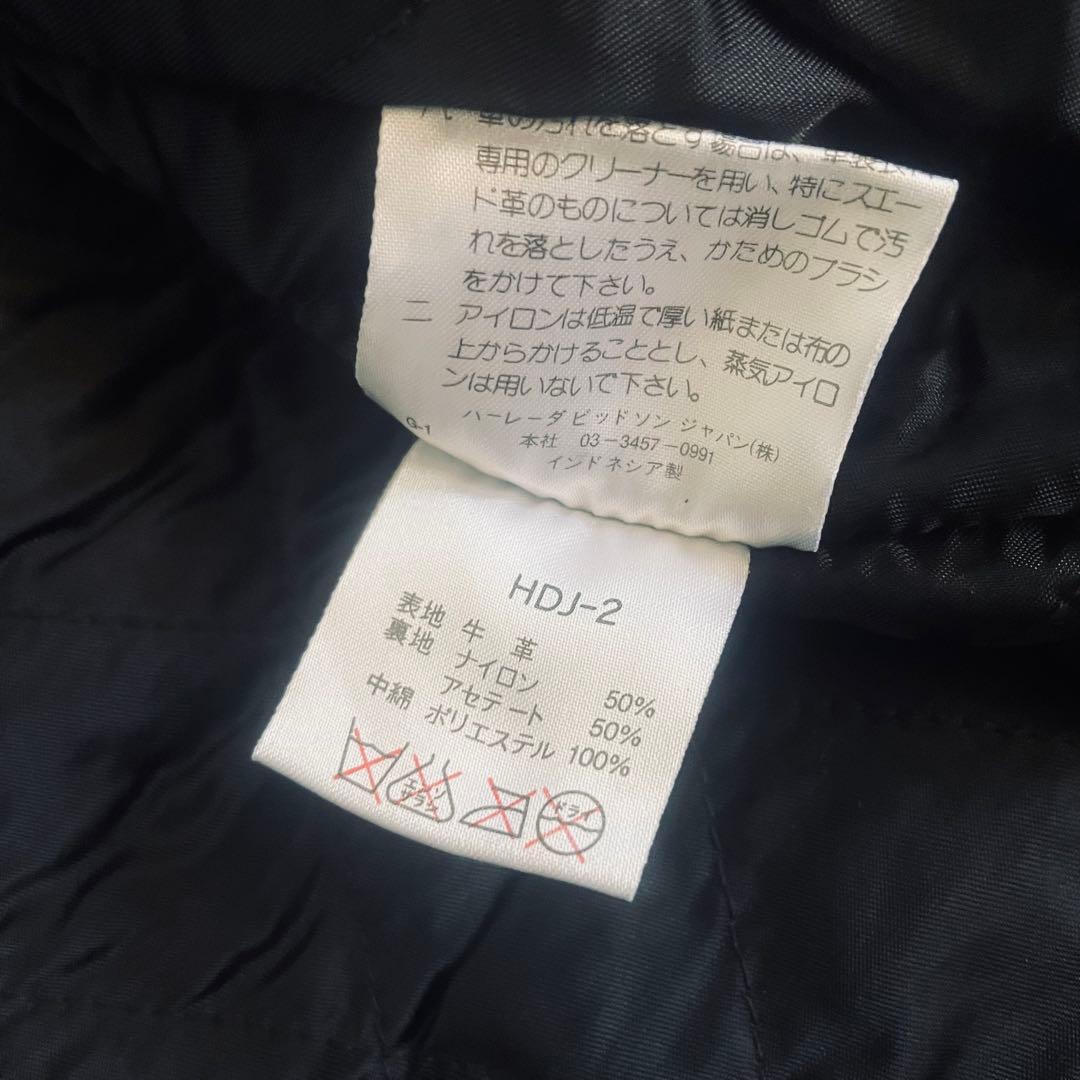 ハ、革の汚れを落とす場合は、革製衣
専用のクリーナーを用い、特にスエー
ド革のものについては消しゴムで汚
れを落としたうえ、かためのブラシ
をかけて下さい。
二 アイロンは低温で厚い紙または布の
上からかけることとし、蒸気アイロ
ンは用いないで下さい。
ハーレーダビッドソン ジャパン(株)
G-1
本社 03-3457-0991
インドネシア製
HDJ-2
表地 牛 革
裏地 ナイロン 50%
アセテート 50%
中綿 ポリエステル 100%
エンソ
サラシ
ドライ